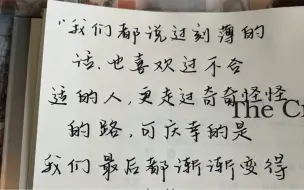 "我们都说过刻薄的
话，也喜欢过不合
适的人，更走过奇奇怪怪
The C
的路，可庆幸的是
我们最后都渐渐变得